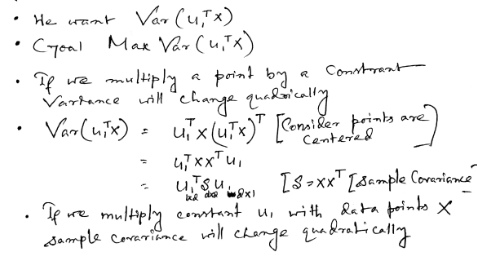 • He want Var(u₁ᵀx)
• Goal Max Var(u₁ᵀx)
• If we multiply a point by a constrant
Variance will change quadrically
• Var(u₁ᵀx) = u₁ᵀx(u₁ᵀx)ᵀ [Consider points are
centered]
= u₁ᵀxxᵀu₁
= u₁ᵀSu₁ [S = xxᵀ [Sample Covariance]
1xd dxd dx1
• If we multiply constant u₁ with data points X
sample covariance will change quadratically